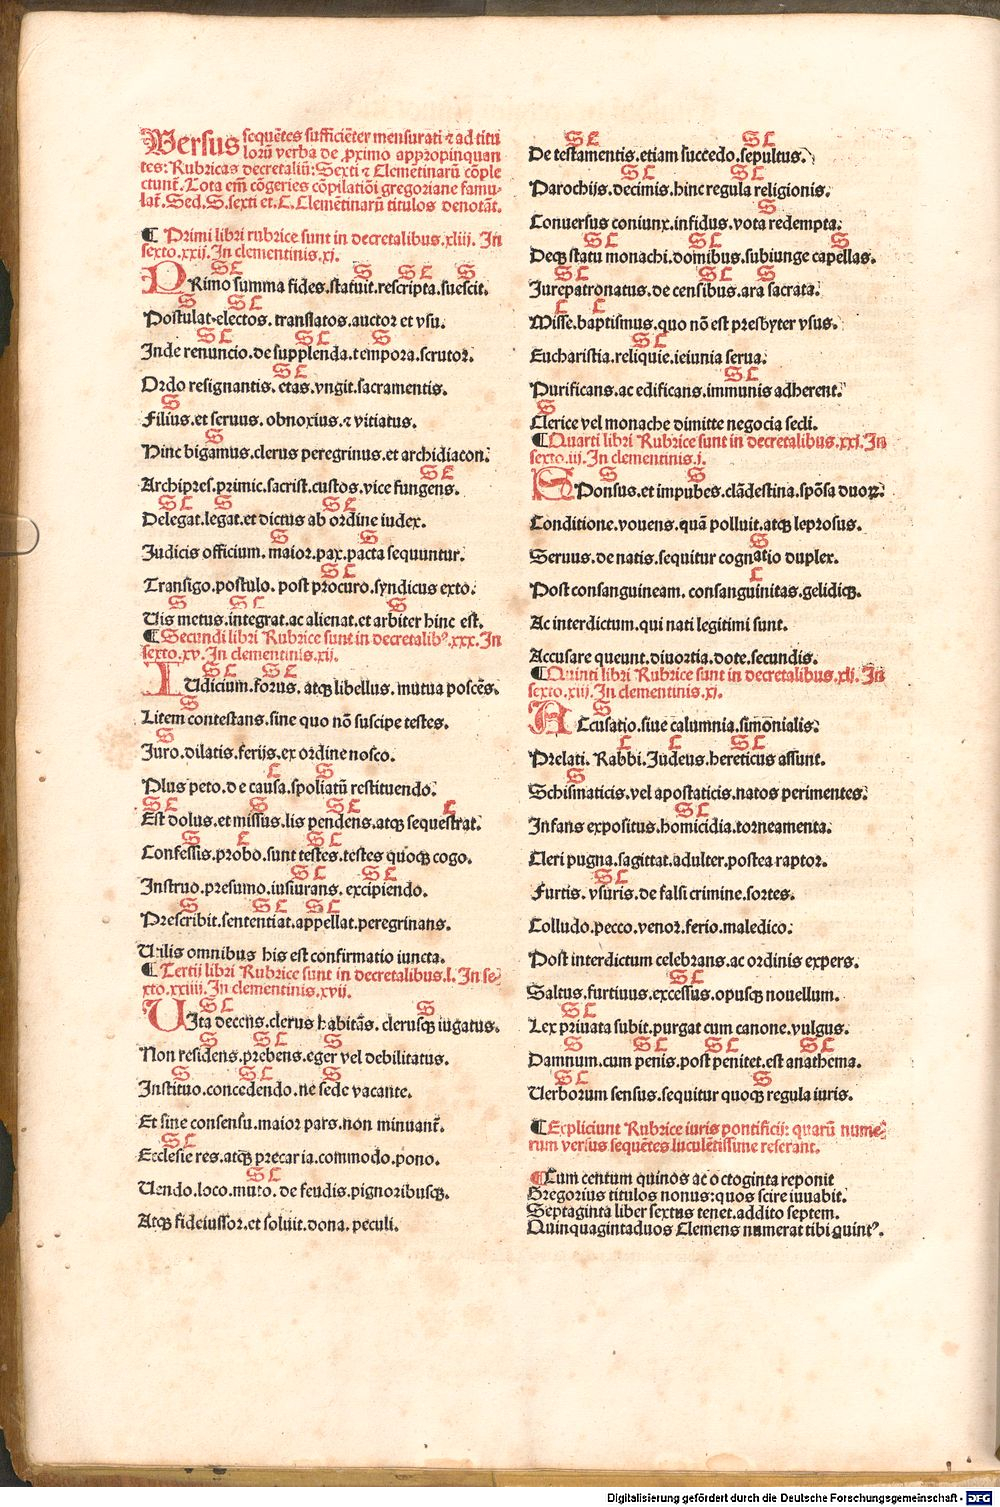 Versus sequētes sufficiēter mensurati ⁊ ad titu
lorū verba de ꝓximo appropinquan
tes: Rubricas decretaliū: Sexti ⁊ Clemētinarū cōple
ctunt̄. Tota em̄ cōgeries cōpilatiōi gregoriane famu-
lat̄. Sed. S. sexti et. C. Clemētinarū titulos denotāt.
¶ Primi libri rubrice sunt in decretalibus. xliij. In
sexto. xxij. In clementinis. xj.
S C S S C S
PRimo summa fides. statuit. rescripta. suescit.
S S C
Postulat. electos. translatos. auctor et vsu.
S C S C S
Inde renuncio. de supplenda. tempora. scrutor.
S C
Ordo resignantis. etas. vngit. sacramentis.
S
Filius. et seruus. obnoxius. ⁊ vitiatus.
S
Hinc bigamus. clerus peregrinus. et archidiacon.
S C
Archipr̄es. primic. sacrist. custos. vice fungens.
S C S S C
Delegat. legat. et dictus ab ordine iudex.
S S
Judicis officium. maior. pax. pacta sequuntur.
S C
Transigo. postulo. post procuro. syndicus exto.
S S C S
Uis metus. integrat. ac alienat. et arbiter hinc est.
¶ Secundi libri Rubrice sunt in decretalibꝰ. xxx. In
sexto. xv. In clementinis. xij.
S C S C
IUdicium. forus. atqꝫ libellus. mutua poscēs.
S
Litem contestans. sine quo nō suscipe testes.
S
Juro. dilatis. ferijs. ex ordine nosco.
C S
Plus peto. de causa. spoliatū restituendo.
S C S S C C
Est dolus. et missus. lis pendens. atqꝫ sequestrat.
S C S C
Confessis. probo. sunt testes. testes quoqꝫ cogo.
S C S C
Instruo. presumo. iusiurans. excipiendo.
S S C S C
Prescribit. sententiat. appellat. peregrinans.
Utilis omnibus his est confirmatio iuncta.
¶ Tertij libri Rubrice sunt in decretalibus. l. In se
xto. xxiiij. In clementinis. xvij.
S C S
UIta decens. clerus habitās. clerusqꝫ iugatus.
S S C S
Non residens. prebens. eger vel debilitatus.
S S C S
Instituo. concedendo. ne sede vacante.
Et sine consensu. maior pars. non minuant̄.
S C
Ecclesie res. atqꝫ precaria. commodo. pono.
S C
Uendo. loco. muto. de feudis. pignoribusqꝫ.
Atqꝫ fideiussor. et soluit. dona. peculi.
S C S C
De testamentis. etiam succedo. sepultus.
S C S C
Parochijs. decimis. hinc regula religionis.
S
Conuersus coniunx. infidus. vota redempta.
S C S C S
Deqꝫ statu monachi. domibus. subiunge capellas.
S C S C S
Jurepatronatus. de censibus. ara sacrata.
C C
Misse. baptismus. quo nō est presbyter vsus.
S C
Eucharistia. reliquie. ieiunia serua.
S C
Purificans. ac edificans. immunis adherent.
S
Clerice vel monache dimitte negocia secli.
¶ Quarti libri Rubrice sunt in decretalibus. xxj. In
sexto. iij. In clementinis. j.
S S
SPonsus. et impubes. clādestina. spōsa duoꝝ.
Conditione. vouens. quā polluit. atqꝫ leprosus.
S
Seruus. de natis. sequitur cognatio duplex.
C
Post consanguineam. consanguinitas. gelidiqꝫ.
Ac interdictum. qui nati legitimi sunt.
Accusare queunt. diuortia. dote. secundis.
¶ Quinti libri Rubrice sunt in decretalibus. xlj. In
sexto. xiij. In clementinis. xj.
S
ACcusatio. siue calumnia. simonialis.
C C S C
Prelati. Rabbi. Judeus. hereticus assunt.
S
Schismaticis. vel apostaticis. natos perimentes.
S C
Infans expositus. homicidia. torneamenta.
Cleri pugna. sagittat. adulter. postea raptor.
S C
Furtis. vsuris. de falsi crimine. sortes.
Colludo. pecco. venor. ferio. maledico.
Post interdictum celebrans. ac ordinis expers.
S C
Saltus. furtiuus. excessus. opusqꝫ nouellum.
S C
Lex priuata subit. purgat cum canone. vulgus.
S S C S C S C
Damnum. cum penis. post penitet. est anathema.
S C S
Uerborum sensus. sequitur quoqꝫ regula iuris.
¶ Expliciunt Rubrice iuris pontificij: quarū nume
rum versus sequētes luculētissime referant.
¶ Cum centum quinos ac octoginta reponit
Gregorius titulos nonus: quos scire iuuabit.
Septaginta liber sextus tenet. addito septem.
Quinquagintaduos Clemens numerat tibi quintꝰ.
Digitalisierung gefördert durch die Deutsche Forschungsgemeinschaft - DFG